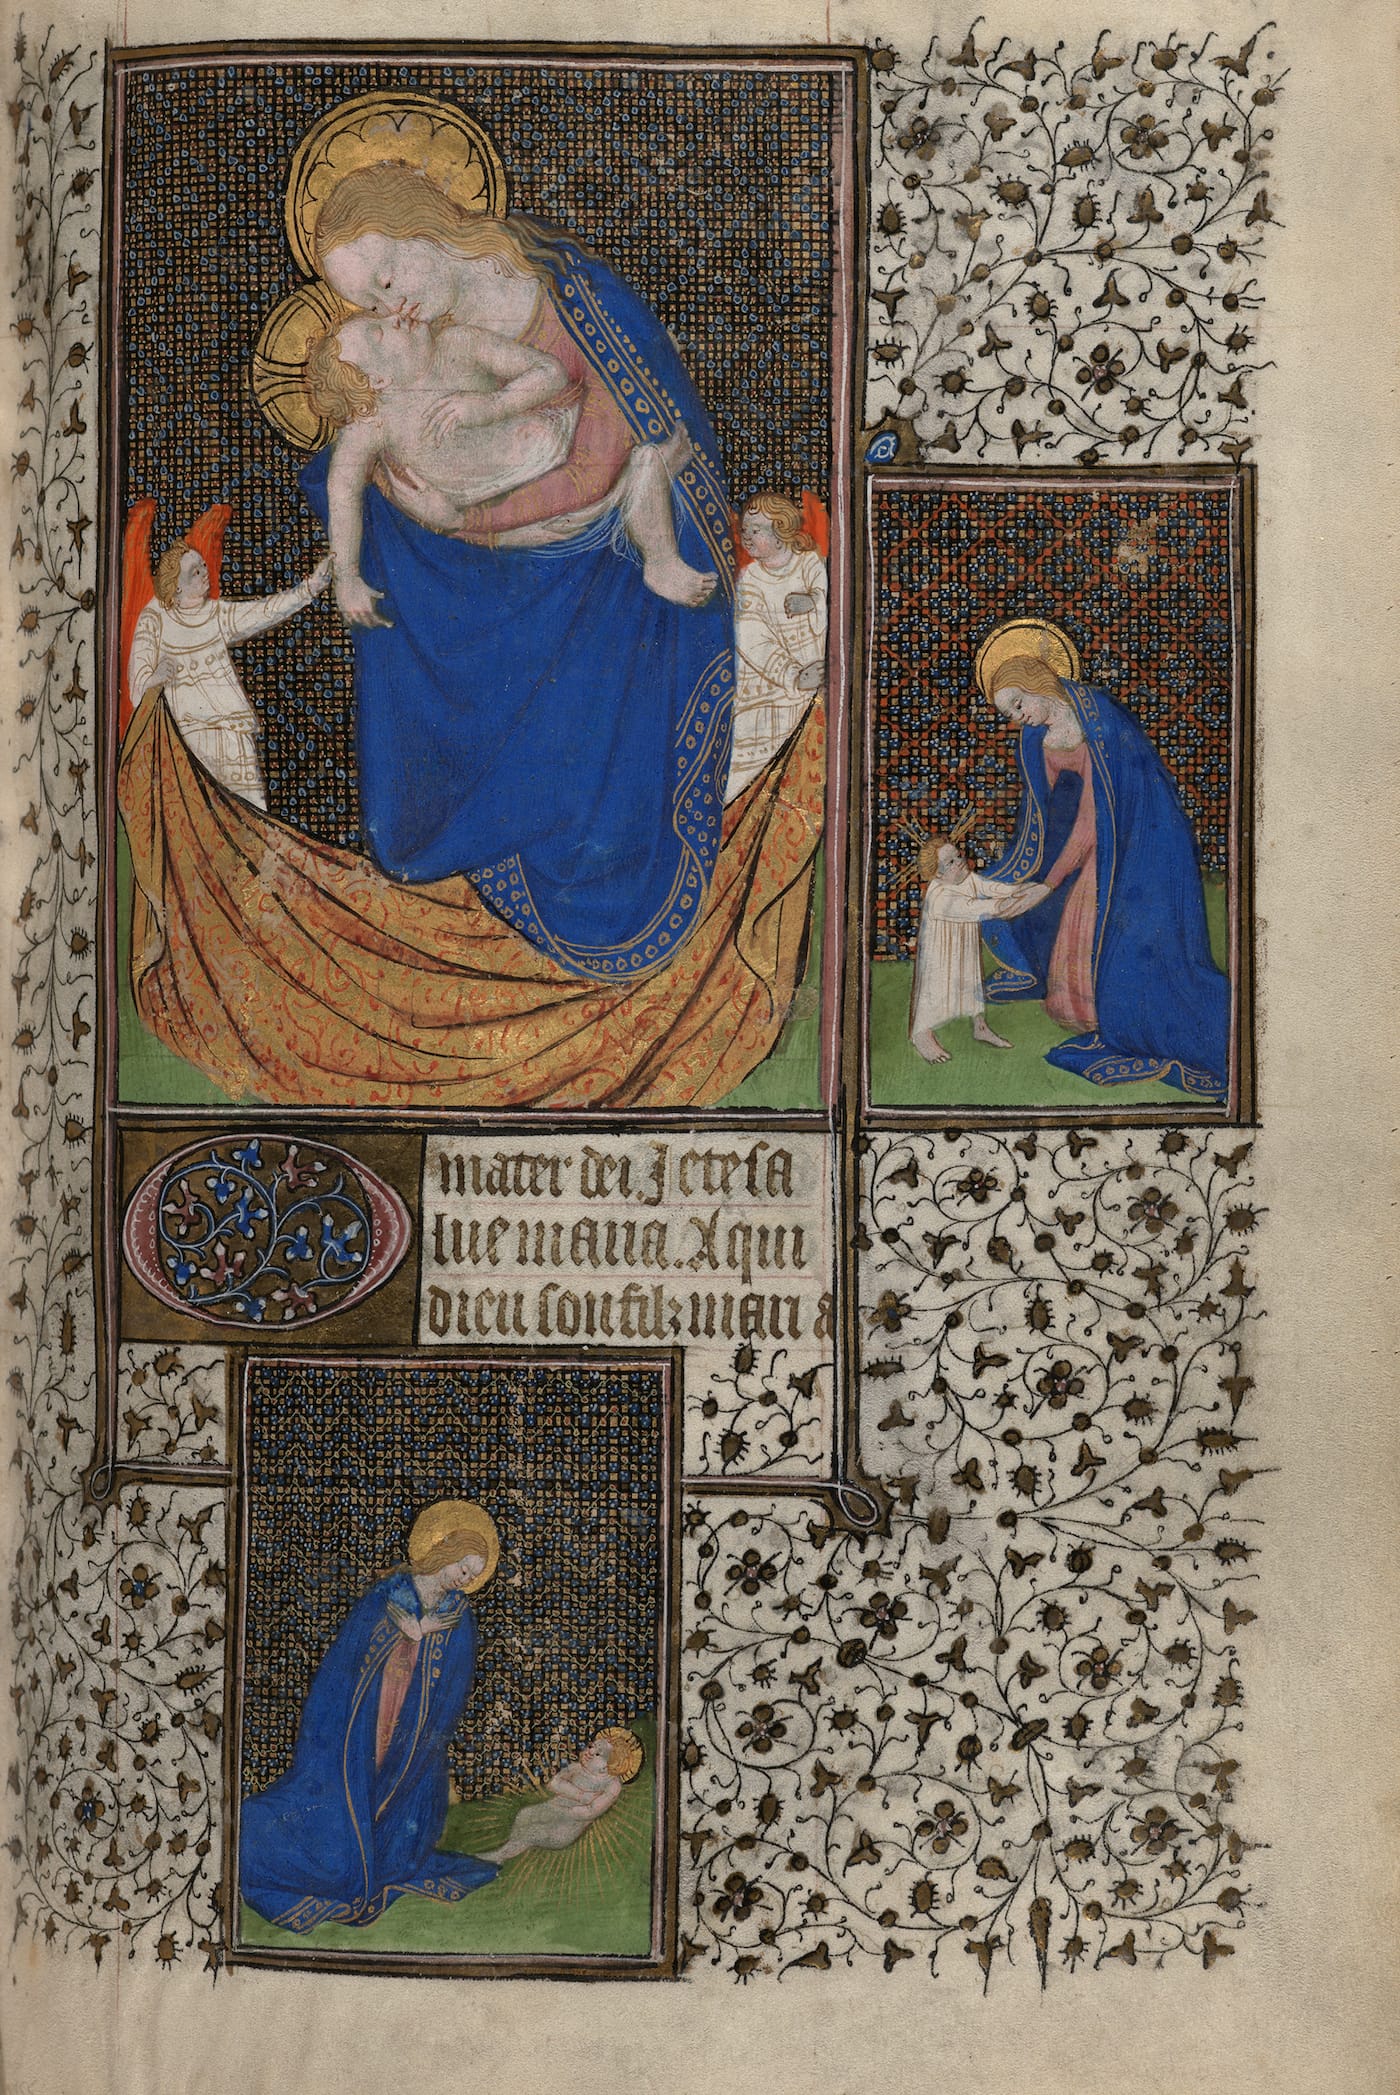 O mater dei. Je te sa
lue maria. A qui
dieu son filz mari a